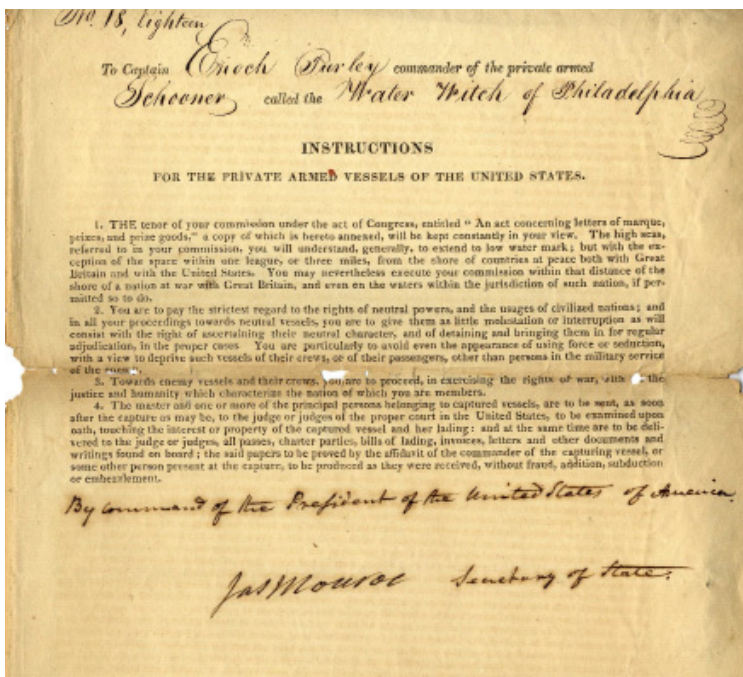 No. 18, Eighteen
To Captain Enoch Turley commander of the private armed
Schooner called the Water Witch of Philadelphia
INSTRUCTIONS
FOR THE PRIVATE ARMED VESSELS OF THE UNITED STATES.
1. THE tenor of your commission under the act of Congress, entitled "An act concerning letters of marque,
prizes, and prize goods," a copy of which is hereto annexed, will be kept constantly in your view. The high seas,
referred to in your commission, you will understand, generally, to extend to low water mark; but with the ex-
ception of the space within one league, or three miles, from the shore of countries at peace both with Great
Britain and with the United States. You may nevertheless execute your commission within that distance of the
shore of a nation at war with Great Britain, and even on the waters within the jurisdiction of such nation, if per-
mitted so to do.
2. You are to pay the strictest regard to the rights of neutral powers, and the usages of civilized nations; and
in all your proceedings towards neutral vessels, you are to give them as little molestation or interruption as will
consist with the right of ascertaining their neutral character, and of detaining and bringing them in for regular
adjudication, in the proper cases You are particularly to avoid even the appearance of using force or seduction,
with a view to deprive such vessels of their crews, or of their passengers, other than persons in the military service
of the enemy.
3. Towards enemy vessels and their crews, you are to proceed, in exercising the rights of war, with the
justice and humanity which characterize the nation of which you are members.
4. The master and one or more of the principal persons belonging to captured vessels, are to be sent, as soon
after the capture as may be, to the judge or judges of the proper court in the United States, to be examined upon
oath, touching the interest or property of the captured vessel and her lading: and at the same time are to be deli-
vered to the judge or judges, all passes, charter parties, bills of lading, invoices, letters and other documents and
writings found on board; the said papers to be proved by the affidavit of the commander of the capturing vessel, or
some other person present at the capture, to be produced as they were received, without fraud, addition, subduction
or embezzlement.
By command of the President of the United States of America.
Jas Monroe Secretary of State.